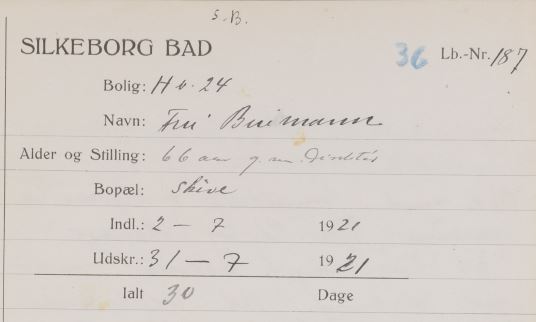 S.B.
SILKEBORG BAD
36 Lb.-Nr. 187
Bolig: H b. 24
Navn: Fru
Alder og Stilling: 66 aar g. m.
Bopæl: Skive
Indl.: 2 — 7 1921
Udskr.: 31 — 7 1921
Ialt 30 Dage